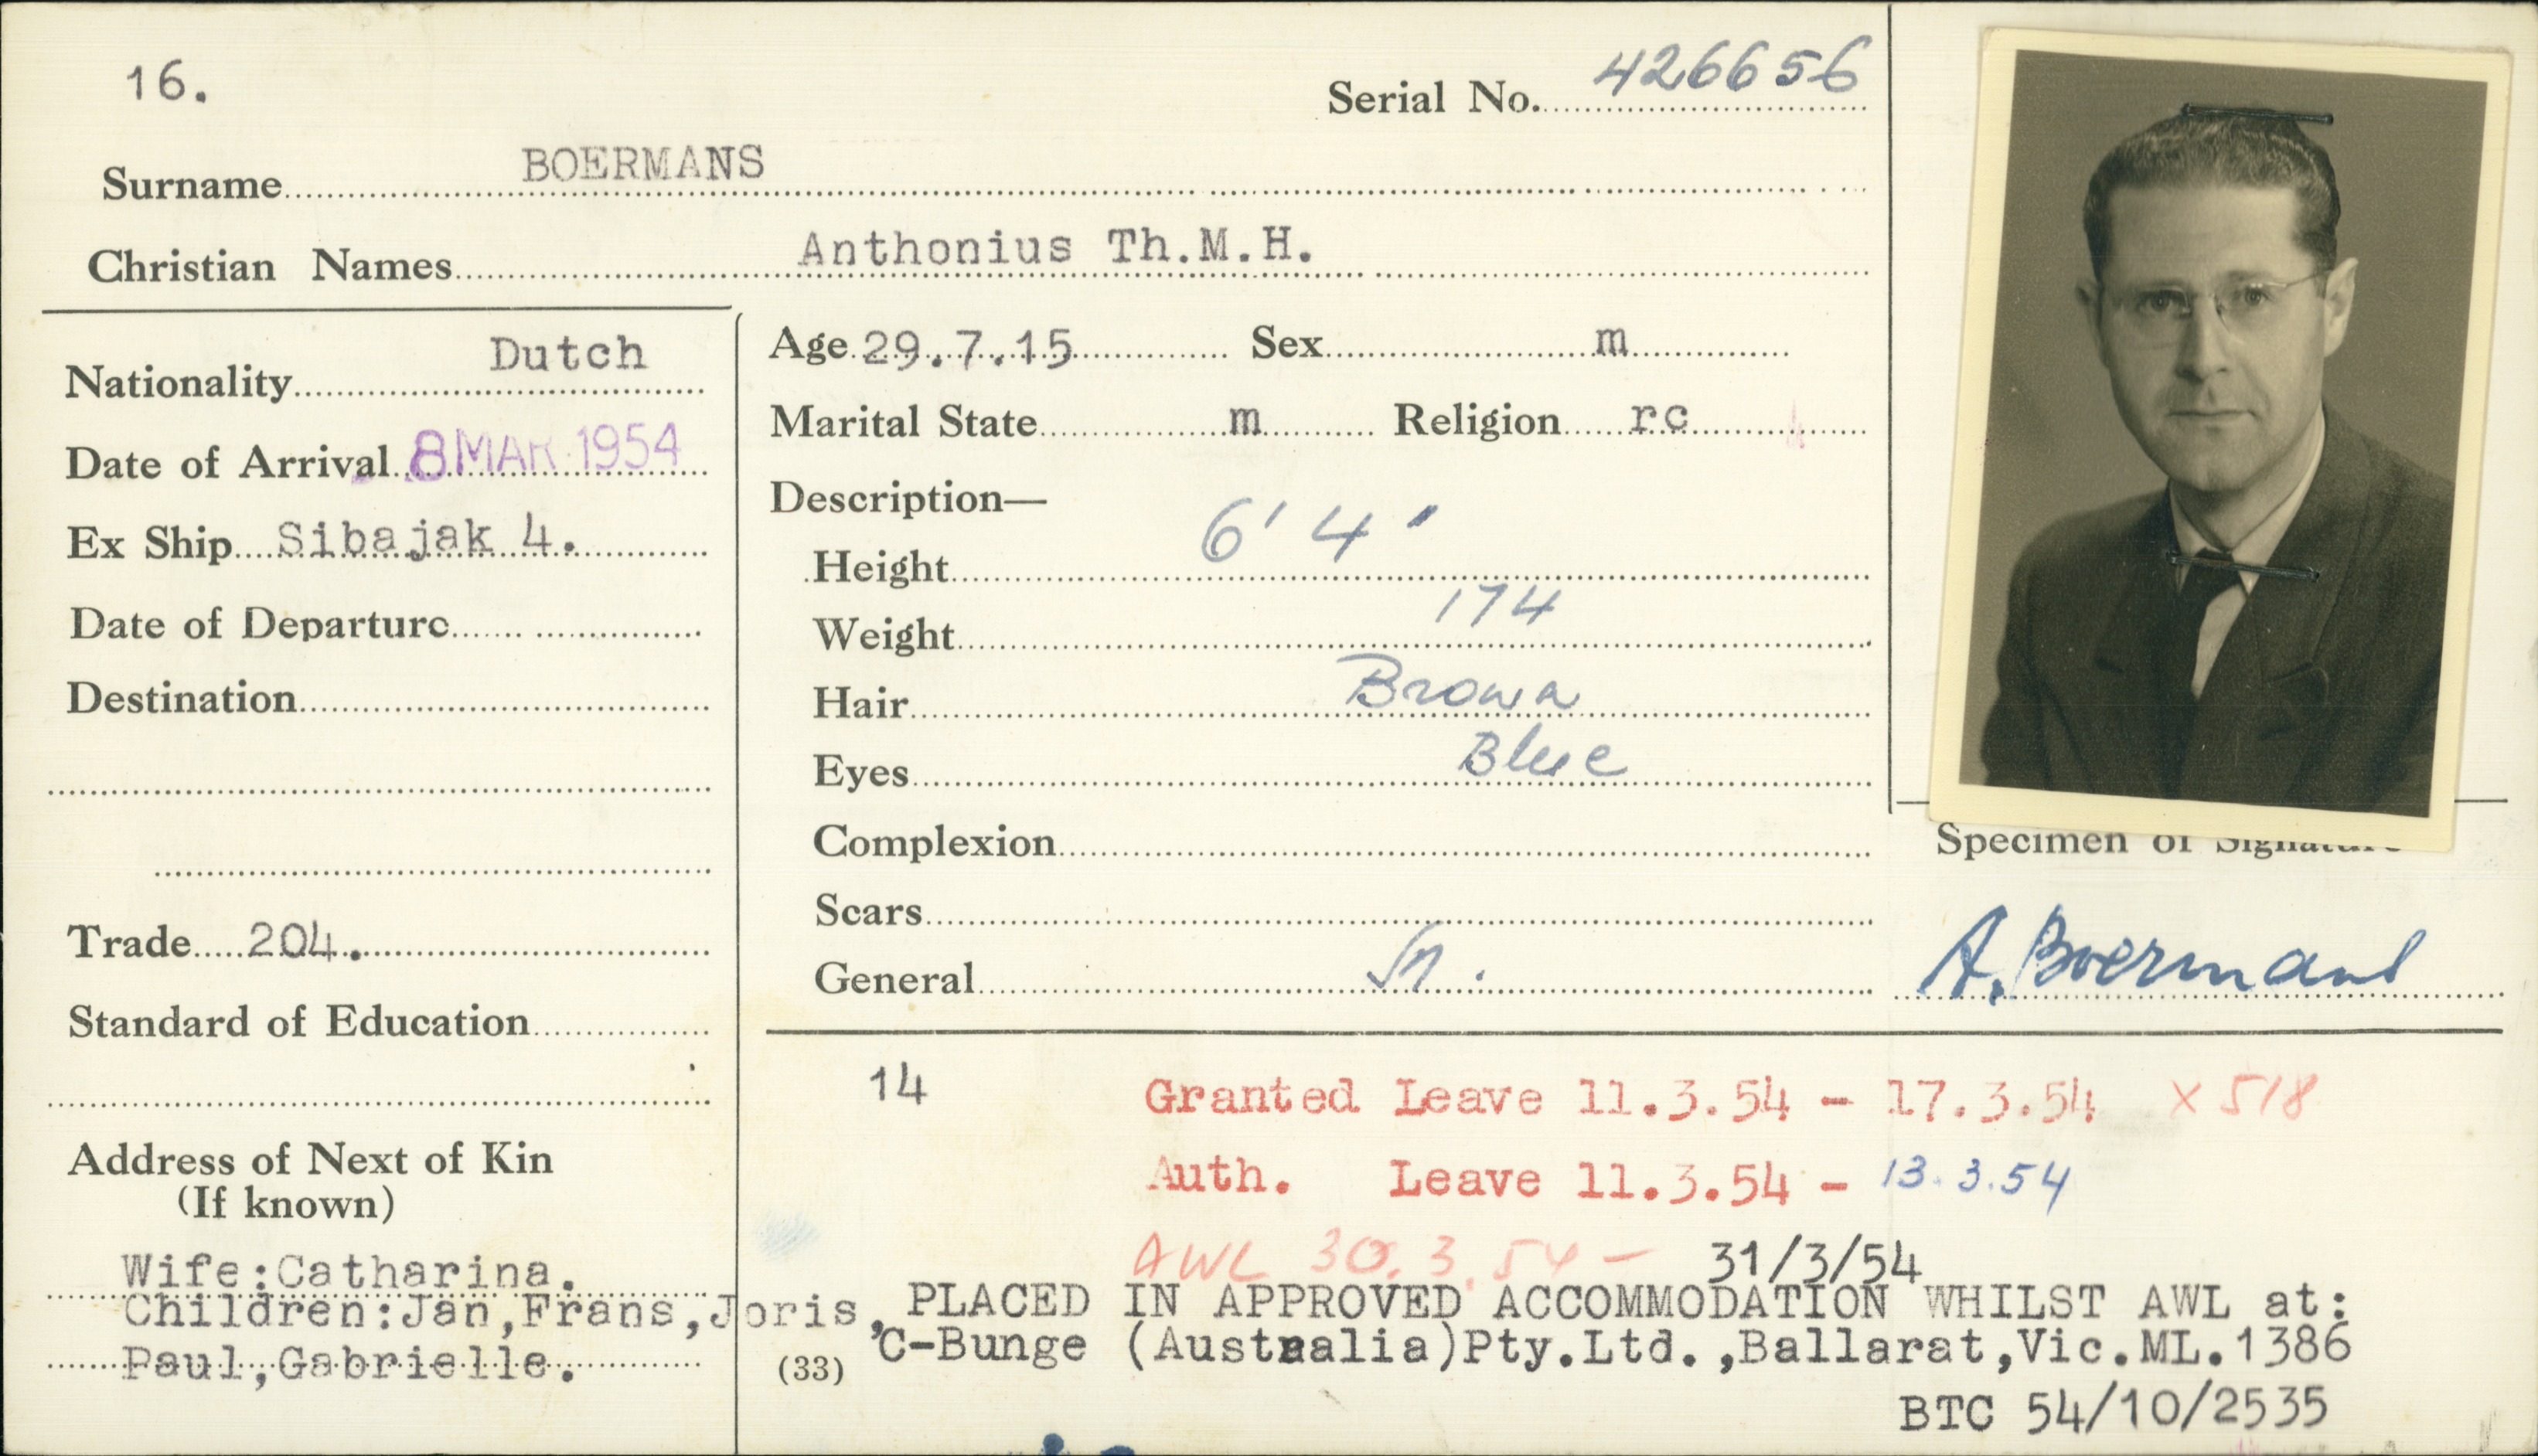 16.
Serial No. 426656
Surname BOERMANS
Christian Names Anthonius Th.M.H.
Nationality Dutch
Date of Arrival 8 MAR 1954
Ex Ship Sibajak 4.
Date of Departure
Destination
Trade 204.
Standard of Education
Address of Next of Kin
(If known)
Wife:Catharina.
Children:Jan,Frans,Joris,
Paul,Gabrielle.
Age 29.7.15 Sex m
Marital State m Religion rc
Description—
Height 6' 4"
Weight 174
Hair Brown
Eyes Blue
Complexion
Scars
General
Specimen of Signature
A. Boermans
14 Granted Leave 11.3.54 - 17.3.54 X 518
Auth. Leave 11.3.54 - 13.3.54
AWL 30.3.54 - 31/3/54
PLACED IN APPROVED ACCOMMODATION WHILST AWL at:
(33) C-Bunge (Australia)Pty.Ltd.,Ballarat,Vic.ML.1386
BTC 54/10/2535